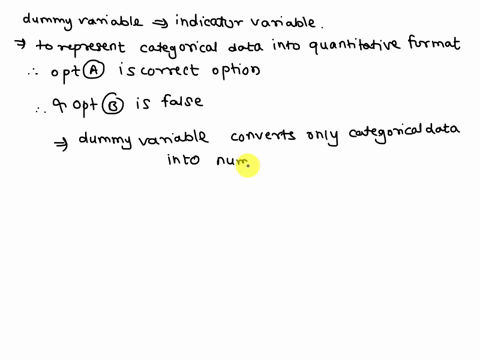 dummy variable ⇒ indicator variable.
⇒ to represent categorical data into quantitative format
∴ opt (A) is correct option
∴ & opt (B) is false
⇒ dummy variable converts only categorical data
into num